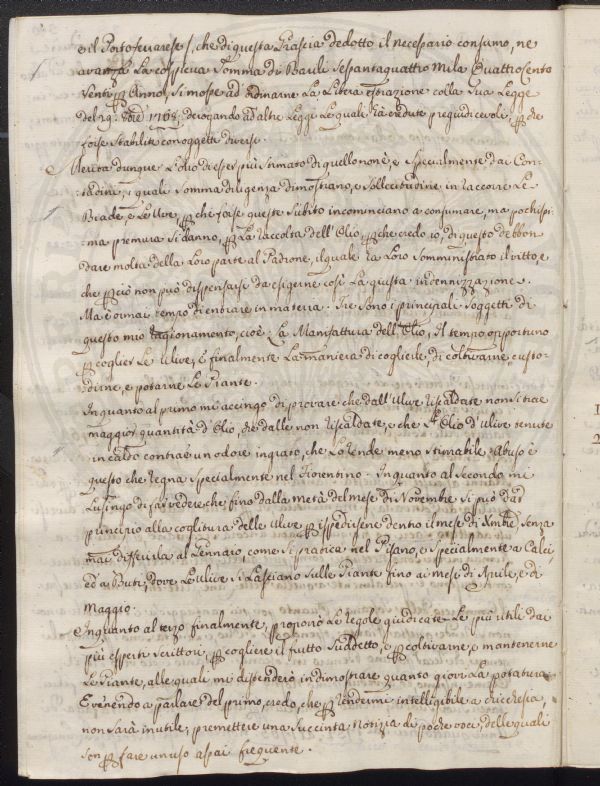 e il Portoferrarese /, che di questa Grascia dedotto il necessario consumo, ne
avanza La cospicua Somma di Barili Sessantaquattro Mila Quattrocento
Venti Anno, Si mosse ad ordinarne La Libera estrazione colla Sua Legge
del 29. 1768; derogando ad altre Leggi Le quali ha credute pregiudicevoli, ꝑche
forse Stabilite con oggetti diversi.
Merita dunque L'olio di esser più Stimato di quello non è, e Specialmente dai Con-
tadini, i quali Somma diligenza dimostrano, e Sollecitudine in raccorre Le
Biade, e Le Ulive, ꝑche forse queste Subito incominciano a consumare, ma pochissi-
ma premura Si danno, ꝑ La raccolta dell'Olio, ꝑche credo io, di questo debbon
dare molta della Loro parte al Padrone, il quale ha Loro Somministrato il vitto, e
che ꝑciò non può dispensarsi da esigerne così La giusta indennizzazione.
Ma è ormai tempo di entrare in materia. Tre Sono i principali Soggetti di
questo mio ragionamento, cioè: La Manifattura dell'Olio, Il tempo opportuno
ꝑ coglier Le Ulive, E finalmente La maniera di coglierle, di coltivarne, custo-
dirne, e potarne Le Piante.
In quanto al primo mi accingo di provare che dall'Ulive riscaldate non Si trae
maggior quantità d'Olio, che dalle non riscaldate, e che L'Olio d'Ulive tenute
in caldo contrae un odore ingrato, che Lo rende meno Stimabile. Abuso è
questo che regna Specialmente nel Fiorentino. In quanto al Secondo mi
Lusingo di far vedere, che fino dalla metà del mese di Novembre Si può dar
principio alla coglitura delle Ulive ꝑ ispedirsene dentro il mese di Xmbre Senza
mai differirla al Gennaio, come Si pratica nel Pisano, e Specialmente a Calci,
ed a Buti, dove Le Ulive Si Lasciano Sulle Piante fino ai mesi di Aprile, e di
Maggio.
In quanto al terzo finalmente, proporrò Le regole giudicate Le più utili dai
più esperti Scrittori, ꝑ cogliere il frutto Suddetto, e ꝑ coltivarne, e mantenerne
Le Piante, alle quali mi distenderò in dimostrare quanto giovi La potatura.
E venendo a parlare del primo, credo, che ꝑ rendermi intelligibile a chicchesia,
non Sarà inutile, premettere una Succinta notizia di poche voci, delle quali
Son ꝑ fare un uso assai frequente.